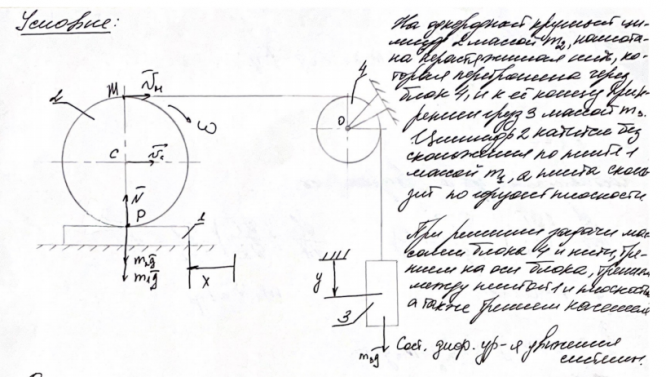 Условие:
На однородный круглый ци-
линдр 2 массой m₂, намота-
на нерастяжимая нить, ко-
торая переброшена через
блок 4, и к её концу прик-
реплен груз 3 массой m₃.
Цилиндр 2 катится без
скольжения по плите 1
массой m₁, а плита сколь-
зит по горизонт плоскости
При решении задачи мас-
сами блока 4 и нити, тре-
нием на оси блока, трением
между плитой 1 и плоскость
а также трением качения
Сост. диф. ур-я движения
системы.
M
V̄м
2
ω
C
V̄c
N̄
P
1
m₂ḡ
m₁ḡ
x
4
O
y
3
m₃ḡ